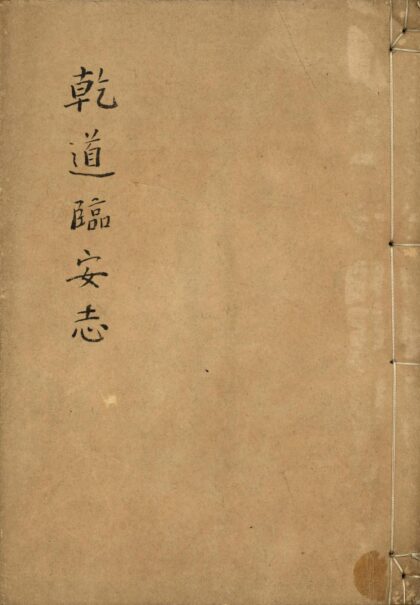 乾道臨安志